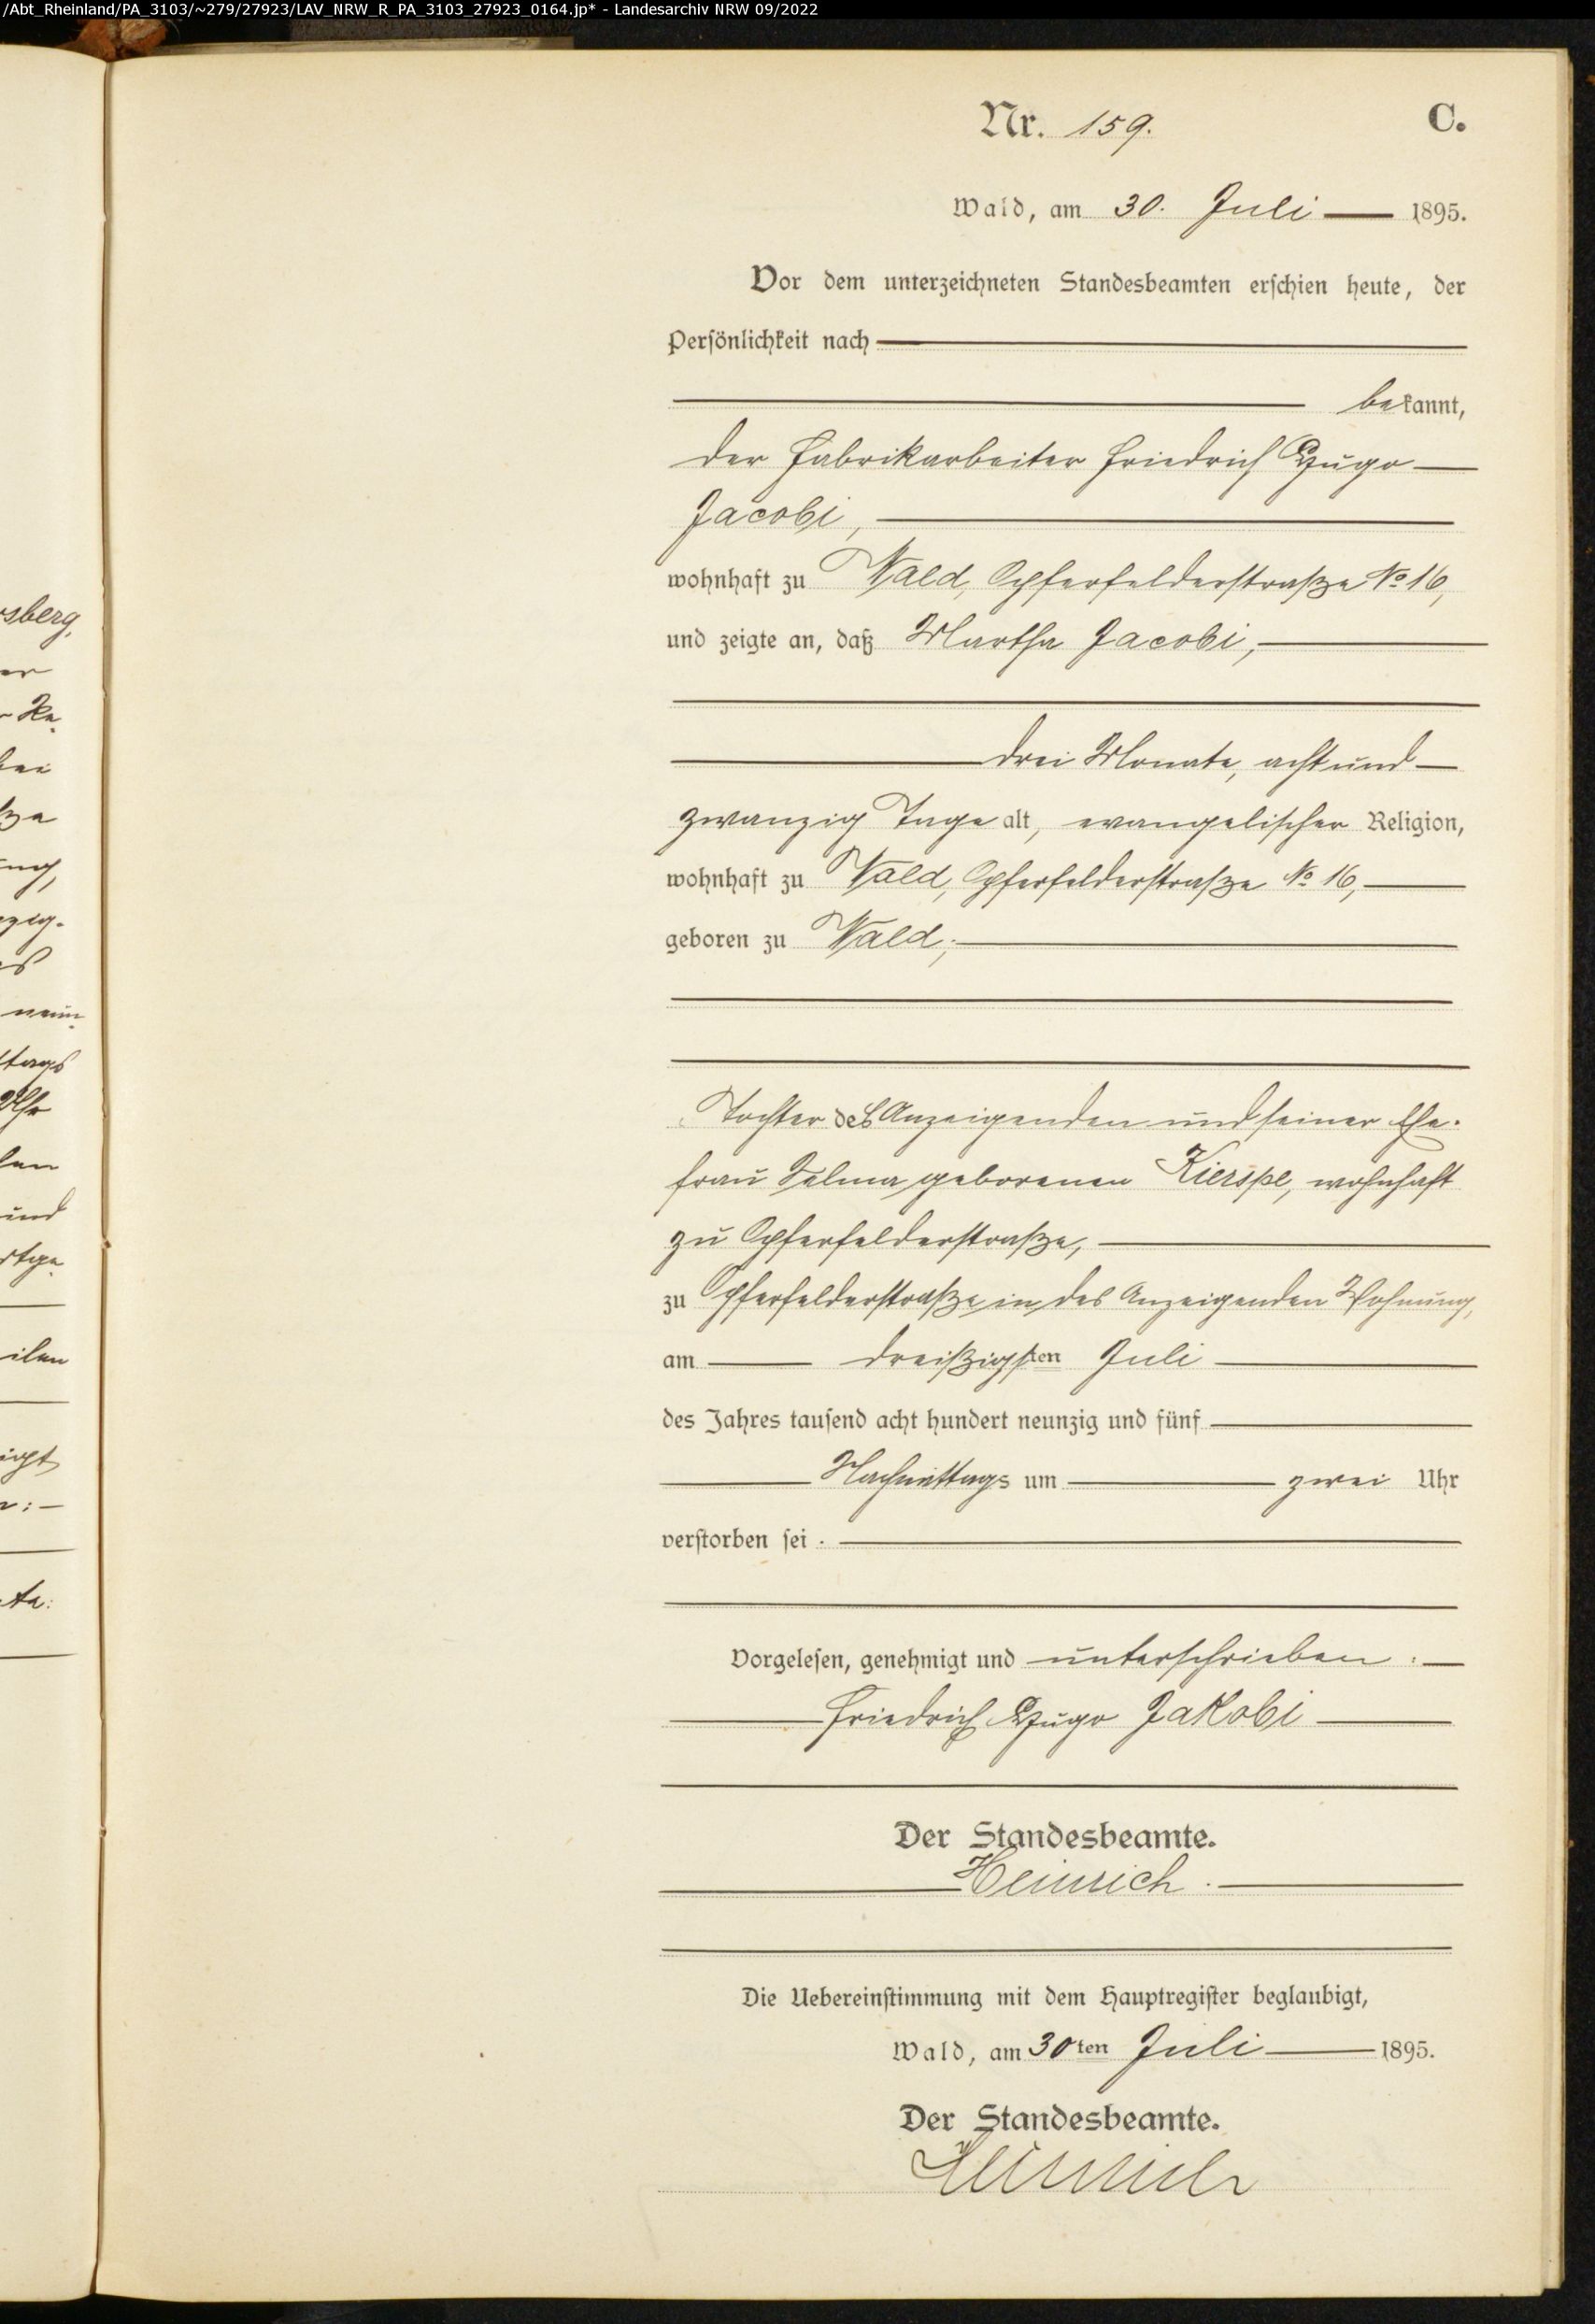 /Abt_Rheinland/PA_3103/~279/27923/LAV_NRW_R_PA_3103_27923_0164.jp* - Landesarchiv NRW 09/2022
Nr. 159. C.
Wald, am 30. Juli 1895.
Vor dem unterzeichneten Standesbeamten erschien heute, der
Persönlichkeit nach
bekannt,
der Fabrikarbeiter Friedrich Hugo
Jacobi,
wohnhaft zu Wald, Opferfelderstraße No 16,
und zeigte an, daß Martha Jacobi,
drei Monate, acht und
zwanzig Tage alt, evangelischer Religion,
wohnhaft zu Wald, Opferfelderstraße No 16,
geboren zu Wald;
Tochter des Anzeigenden und seiner Ehe-
frau Selma geborenen Kierspe, wohnhaft
zu Opferfelderstraße,
zu Opferfelderstraße in des Anzeigenden Wohnung,
am dreißigsten Juli
des Jahres tausend acht hundert neunzig und fünf
Nachmittags um zwei Uhr
verstorben sei.
Vorgelesen, genehmigt und unterschrieben:
Friedrich Hugo Jakobi
Der Standesbeamte.
Heinrich.
Die Uebereinstimmung mit dem Hauptregister beglaubigt,
Wald, am 30ten Juli 1895.
Der Standesbeamte.
Heinrich
sberg,
er
bei
und